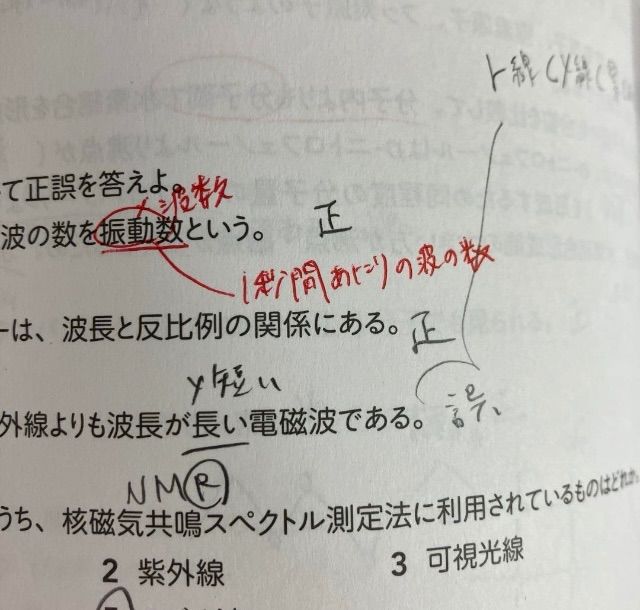 て正誤を答えよ。
×波数
波の数を振動数という。 正
1秒間あたりの波の数
ーは、波長と反比例の関係にある。 正
×短い
外線よりも波長が長い電磁波である。 誤
NMR
うち、核磁気共鳴スペクトル測定法に利用されているものはどれか。
2 紫外線 3 可視光線